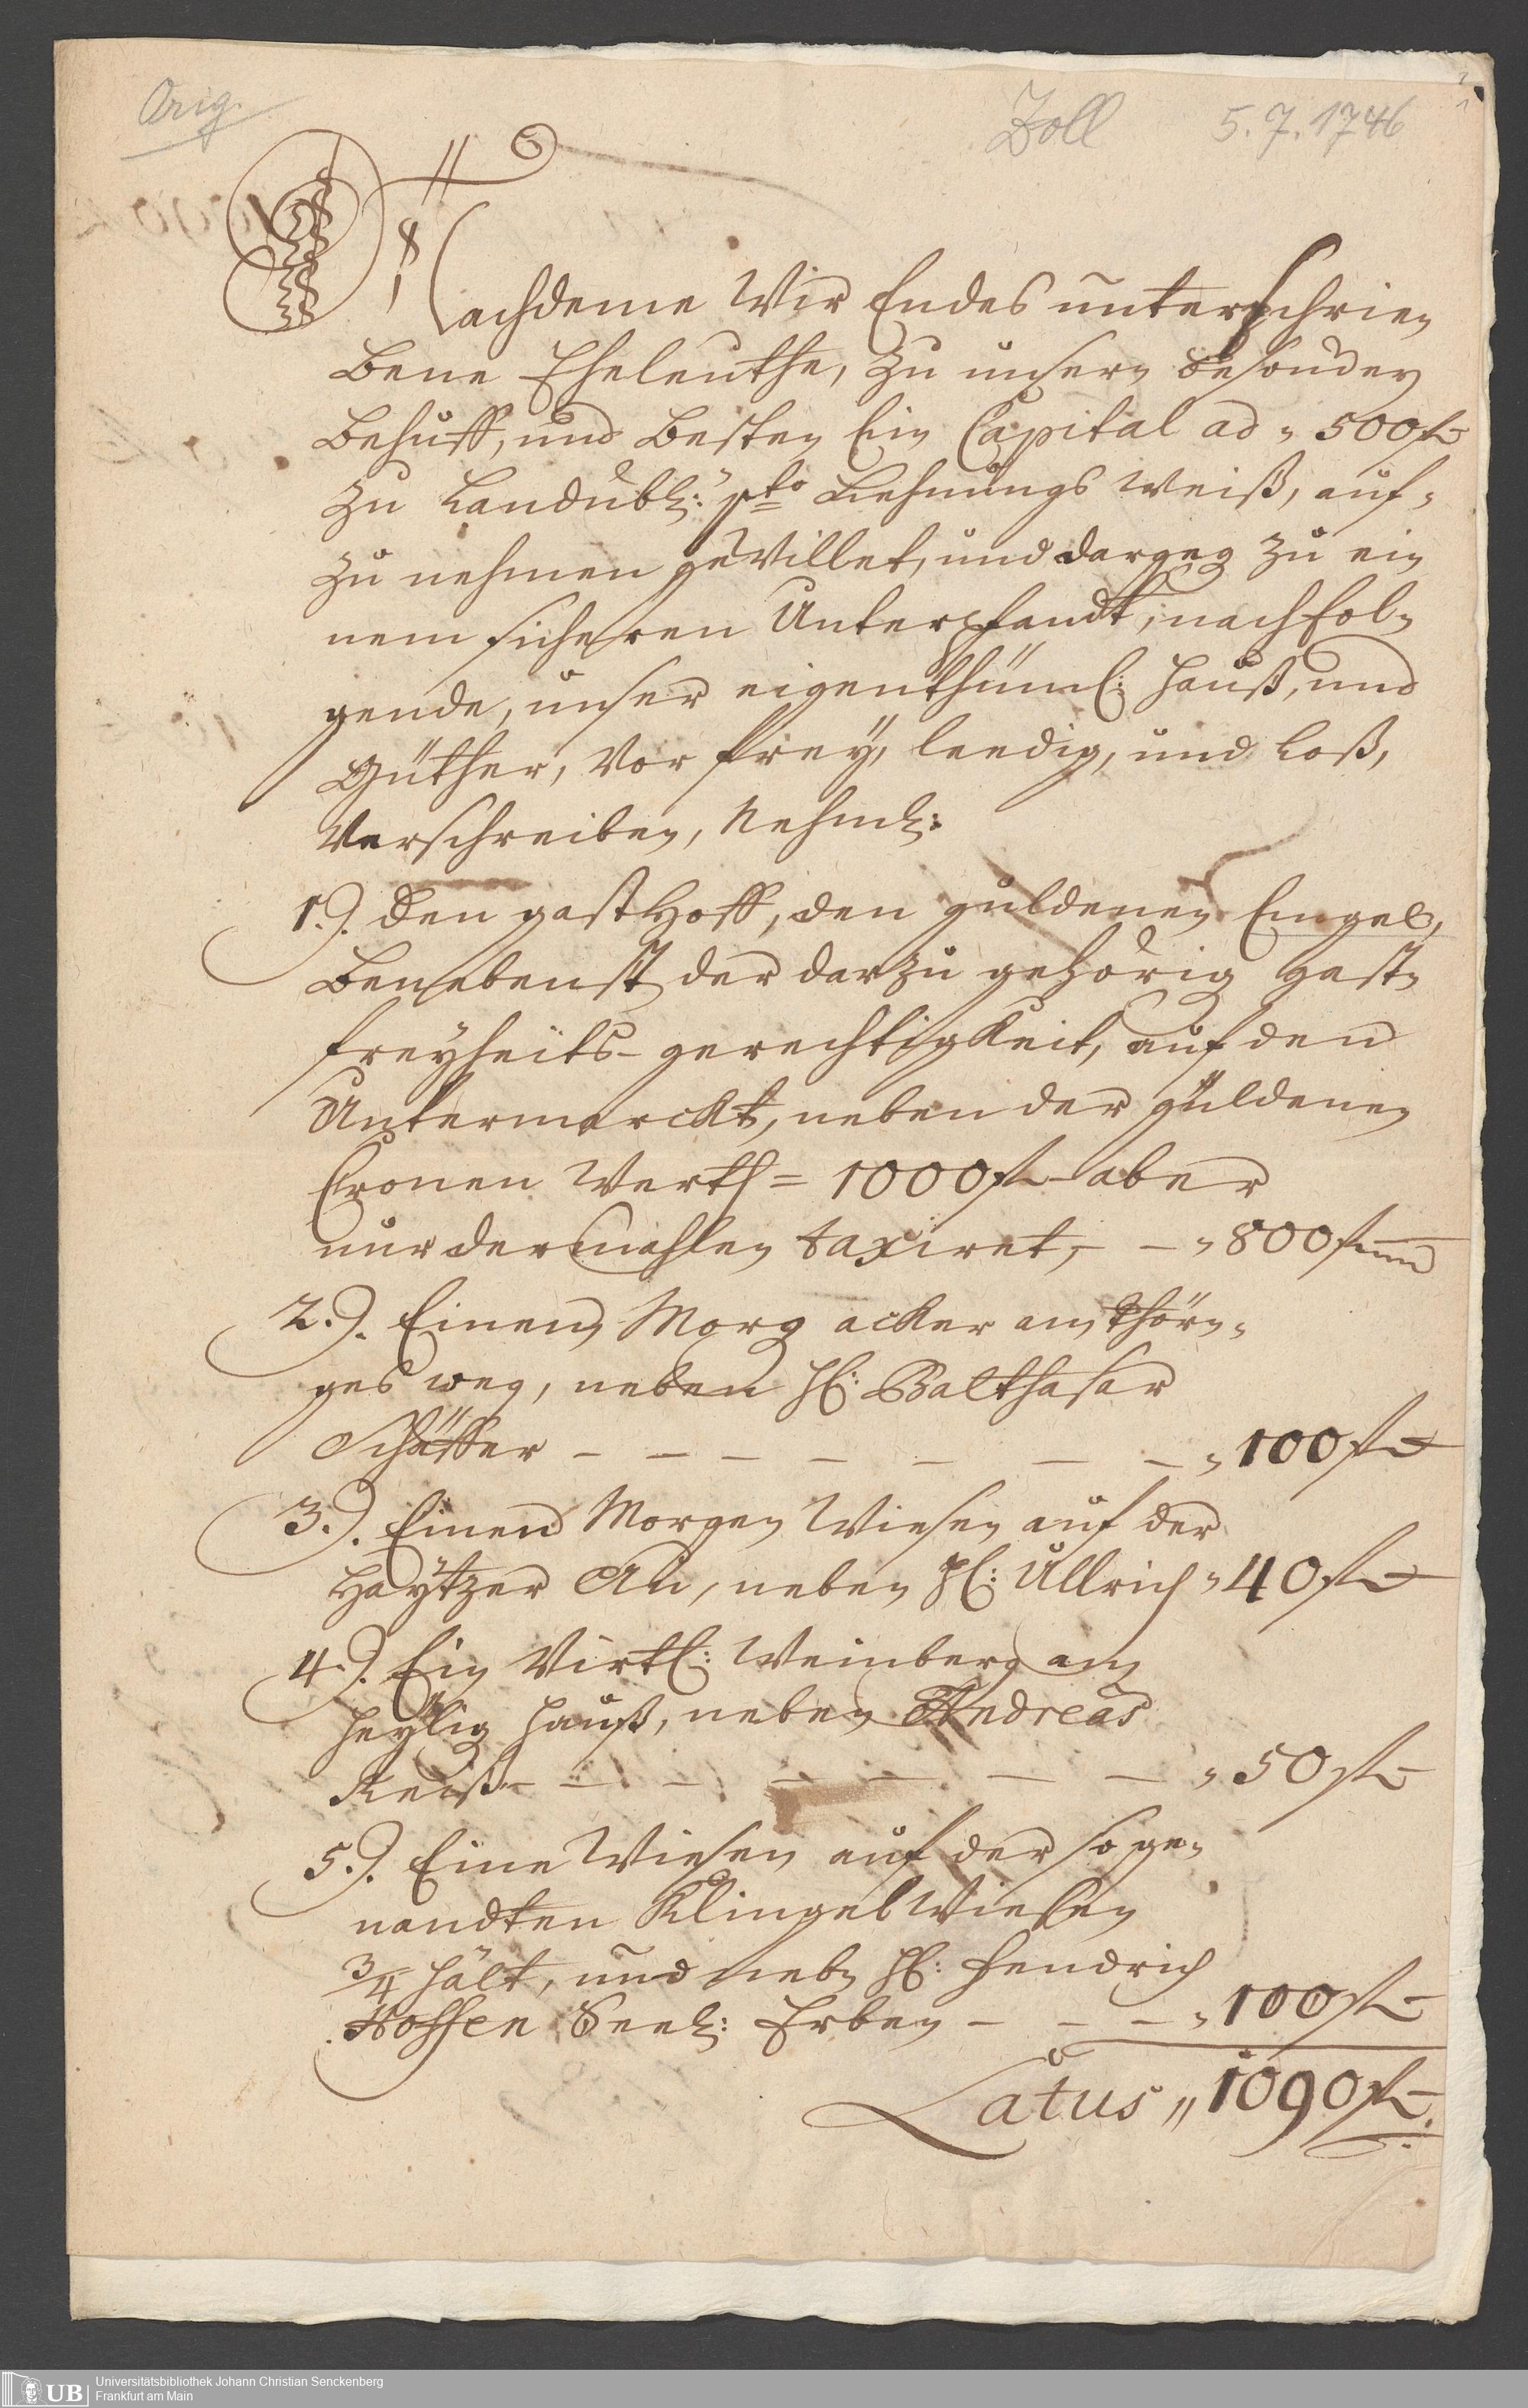 Orig.
Zoll 5.7.1746
Nachdeme Wir Endes unterschrie-
bene Eheleuthe, zu unsern besonder
Behuff, und besten Ein Capital ad " 500 fl
zu Landübl: Lehnungs weiß, auf-
zu nehmen gewillet, und dargeg zu ei-
nem sicheren Unterpfandt, nachfol-
gende, unser eigenthüml: Hauß, und
Güther, vor frey, leedig, und loß,
verschreiben, Nehml:
1.). Den gasthoff, den guldenen Engel,
benebenst der darzu gehörig gast-
freyheits-gerechtigkeit, auf den
Untermarckt, neben der güldenen
Cronen werth = 1000 fl aber
nur dermahlen taxiret, - - " 800 fl
2.). Einen Morg acker am
ges weg, neben H: Balthasar
Schäffer - - - - - - - " 100 fl
3.). Einen Morgen Wiesen auf der
Haytzer Au, neben H: Ullrich " 40 fl
4.). Ein Virtl: Weinberg am
Heylig Hauß, neben Andreas
Reiß - - - - - - - " 50 fl
5.). Eine Wiesen auf der so ge-
nandten Klingel Wiesen
3/4 hält, und neb H: Hendrich
Hossen Seel: Erben - - - " 100 fl
Latus " 1090 fl
UB Universitätsbibliothek Johann Christian Senckenberg
Frankfurt am Main